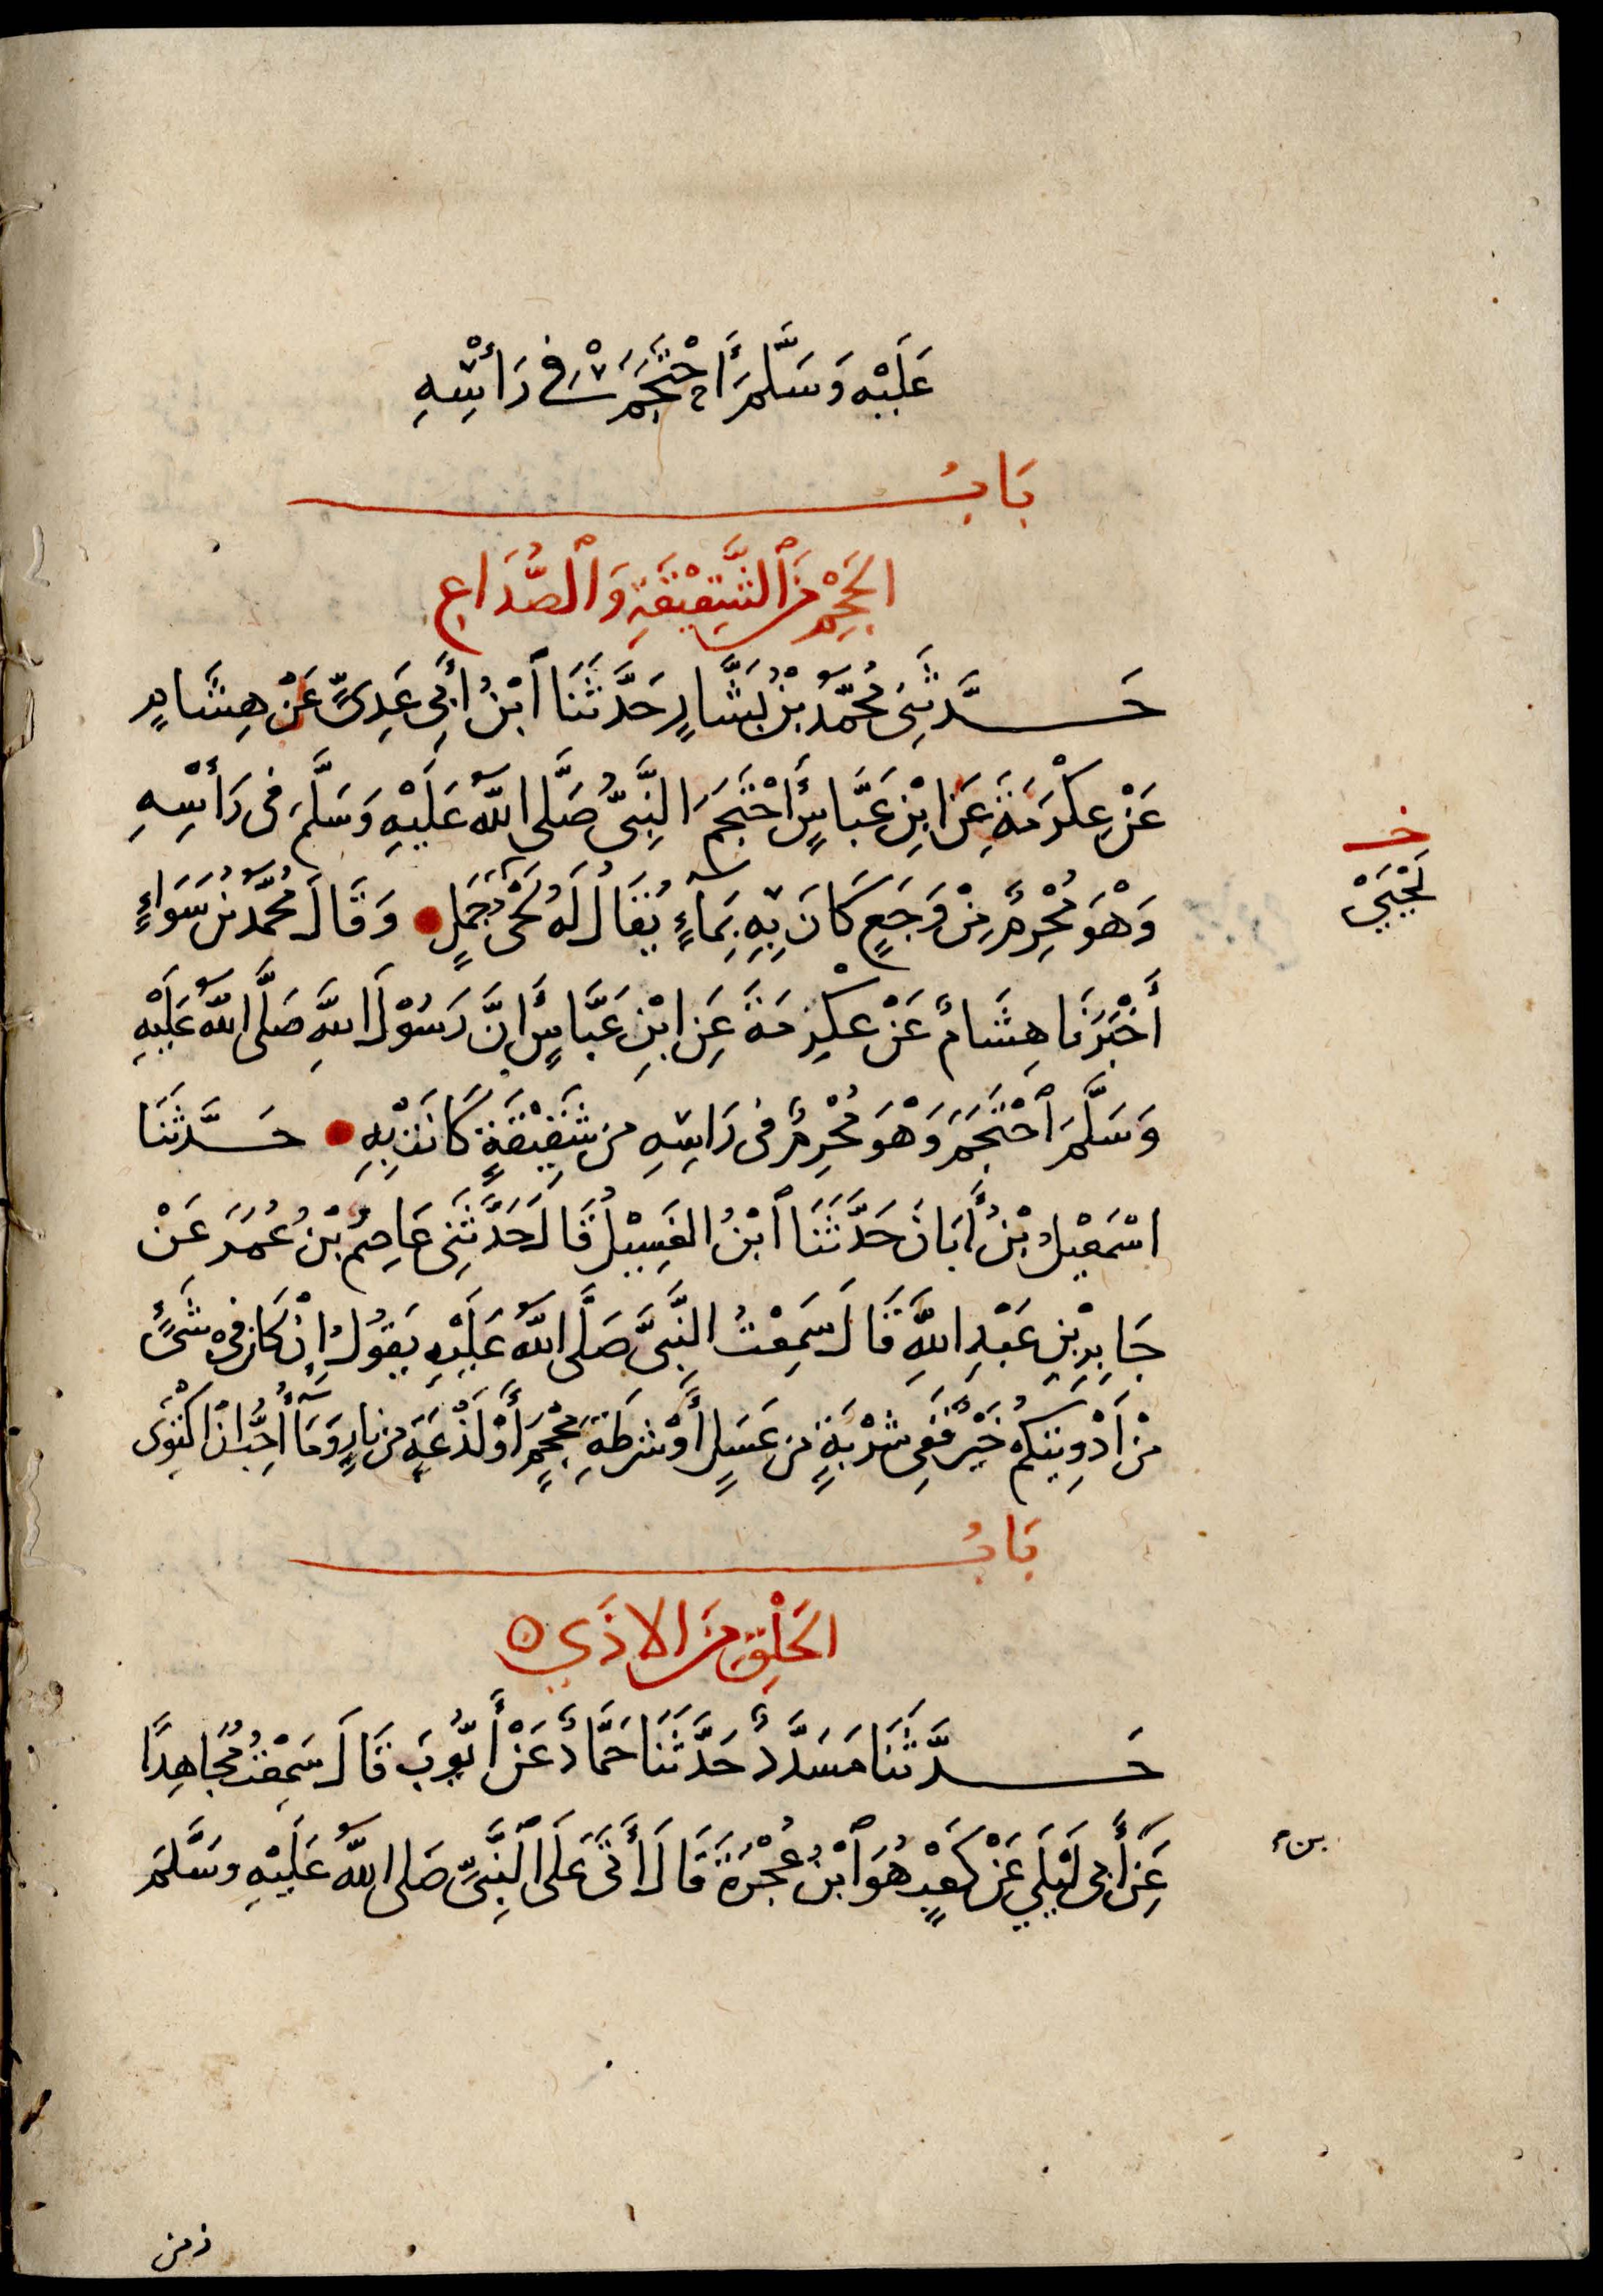 عَلَيْهِ وَسَلَّمَ أَحْتَجَمَ فِي رَأْسِهِ
بَابُ
الحَجْمِ مِنَ ٱلشَّقِيْقَةِ وَٱلصُّدَاعِ
حَدَّثَنِي مُحَمَّدُ بْنُ بَشَّارٍ حَدَّثَنَا ٱبْنُ أَبِي عَدِيٍّ عَنْ هِشَامٍ
عَنْ عِكْرَمَةَ عَنِ ابْنِ عَبَّاسٍ أَحْتَجَمَ النَّبِيُّ صَلَّى اللَّهُ عَلَيْهِ وَسَلَّمَ فِى رَأْسِهِ
وَهْوَ مُحْرِمٌ مِنْ وَجَعٍ كَانَ بِهِ بِمَاءٍ يُقَالُ لَهُ لَحْىُ جَمَلٍ وَقَالَ مُحَمَّدُ بْنُ سَوَاءٍ
أَخْبَرَنَا هِشَامٌ عَنْ عِكْرِمَةَ عَنِ ابْنِ عَبَّاسٍ أَنَّ رَسُوْلَ اللَّهِ صَلَّى اللَّهُ عَلَيْهِ
وَسَلَّمَ ٱحْتَجَمَ وَهْوَ مُحْرِمٌ فِى رَاسِهِ مِنْ شَقِيْقَةٍ كَانَتْ بِهِ حَدَّثَنَا
اسْمَعِيْلُ بْنُ أَبَانَ حَدَّثَنَا ٱبْنُ الغَسِيْلِ قَالَ حَدَّثَنِى عَاصِمُ بْنُ عُمَرَ عَنْ
جَابِرِ بْنِ عَبْدِ اللَّهِ قَالَ سَمِعْتُ النَّبِيَّ صَلَّى اللَّهُ عَلَيْهِ يَقُولُ إِنْ كَانَ فِى شَىْءٍ
مِنْ أَدْوِيَتِكُمْ خَيْرٌ فَفِى شَرْبَةٍ مِنْ عَسَلٍ أَوْ شَرْطَةِ مِحْجَمٍ أَوْ لَذْعَةٍ مِنْ نَارٍ وَمَا أُحِبُّ انْ اكْتَوِىَ
بَابُ
الحَلْقِ مِنَ الاذَي
حَدَّثَنَا مَسَدَّدٌ حَدَّثَنَا حَمَّادٌ عَنْ أَيُّوبَ قَالَ سَمِعْتُ مُجَاهِدًا
عَنِ أَبِى لَيْلَي عَنْ كَعْبٍ هُوَ ٱبْنُ عُجْرَةَ قَالَ أَتَى عَلَى النَّبِىُّ صَلى اللَّهُ عَلَيْهِ وسَلَّمَ
خـ
لَحْيَيْ
بن
زمن